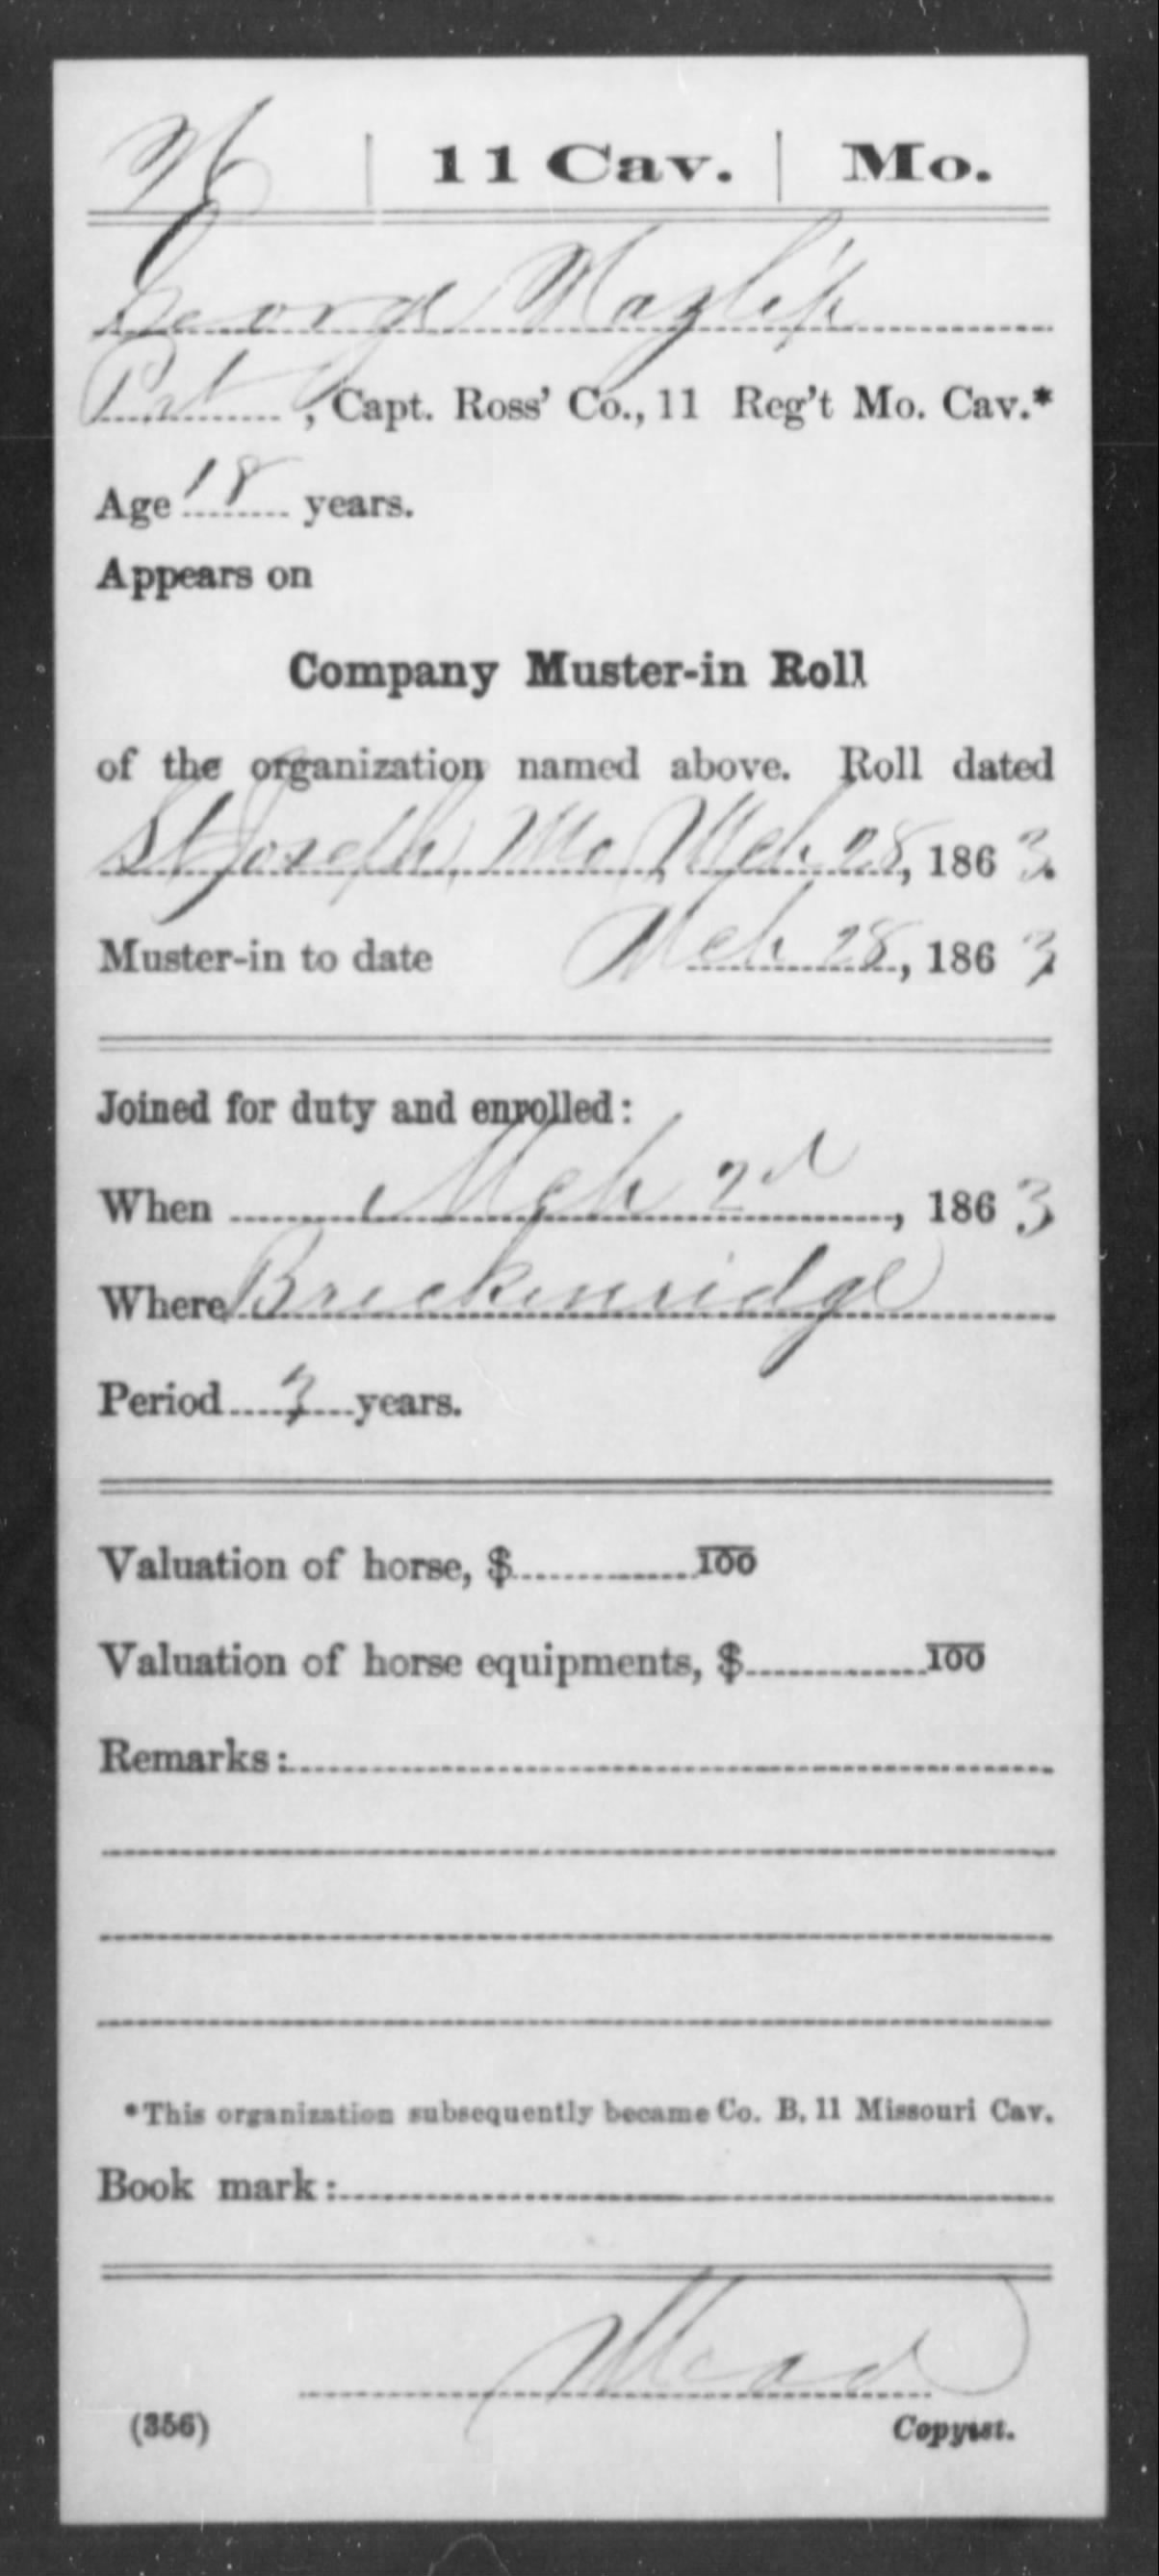 H | 11 Cav. | Mo.
George Hazlip
Pvt, Capt. Ross' Co., 11 Reg't Mo. Cav.*
Age 18 years.
Appears on
Company Muster-in Roll
of the organization named above. Roll dated
St Joseph, Mo, Mch 28, 1863.
Muster-in to date Mch 28, 1863
Joined for duty and enrolled:
When Mch 2d, 1863
Where Breckenridge
Period 3 years.
Valuation of horse, $ 100
Valuation of horse equipments, $ 100
Remarks:
*This organization subsequently became Co. B, 11 Missouri Cav.
Book mark:
Mead
(356) Copyist.